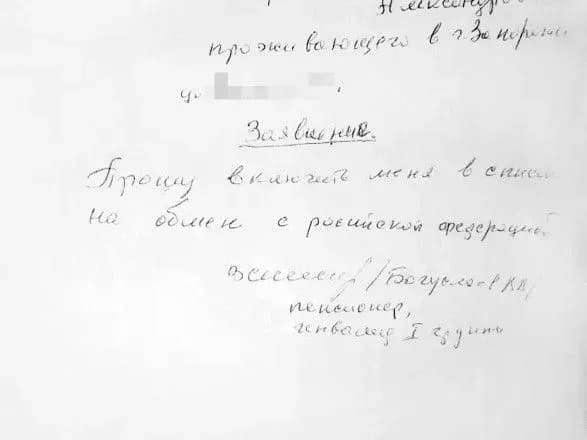 Александров
проживающего в г. Запорожь
ул
Заявление.
Прошу включить меня в список
на обмен с росийской федерацией
пенсионер,
инвалид I групы